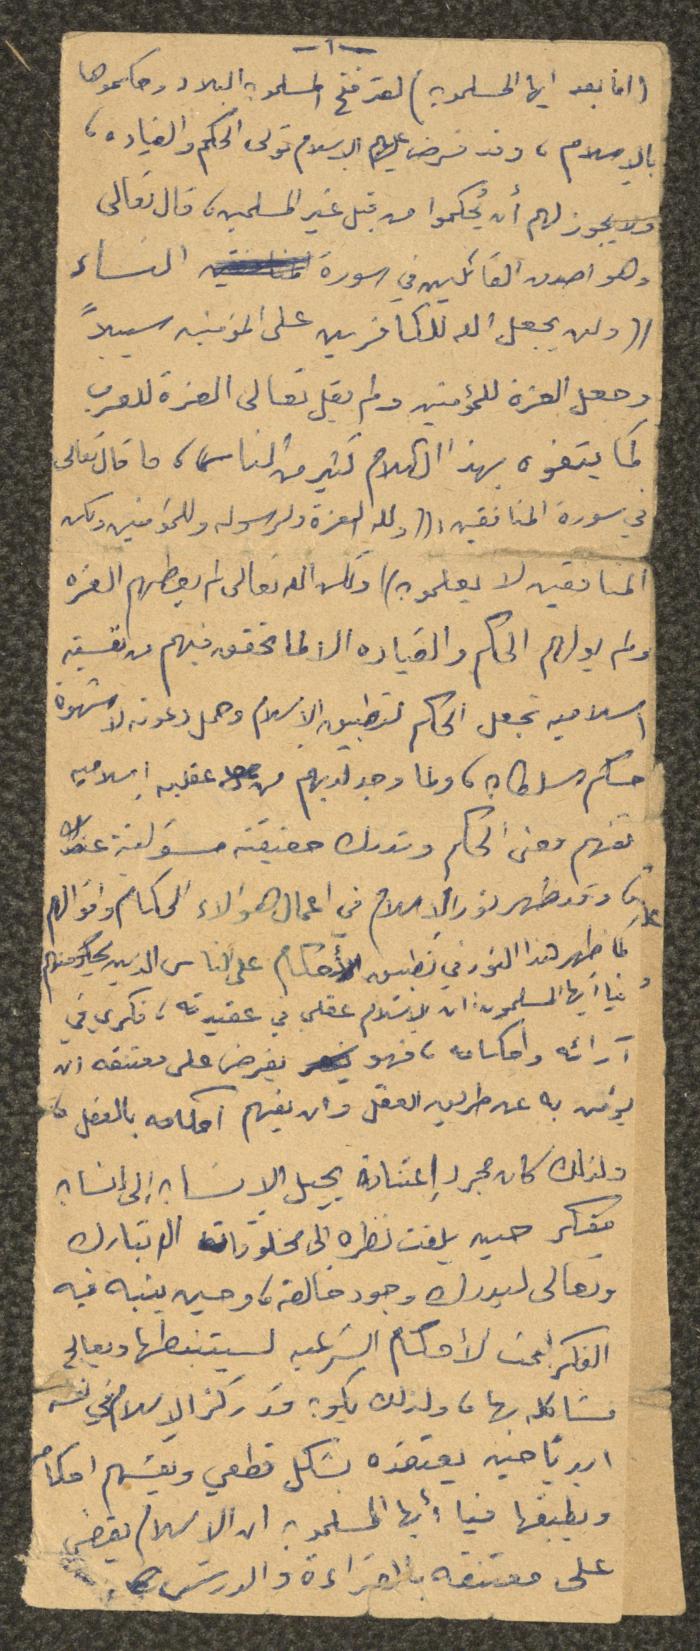 -١-
(اما بعد ايها المسلمون) لقد فتح المسلمون البلاد وحكموها
بالإسلام، وقد فرض عليهم الإسلام تولى الحكم والقياده،
ولا يجوز لهم أن يُحكموا من قبل غير المسلمين، قال تعالى
وهو اصدق القائلين في سورة النساء
((ولن يجعل الله للكافرين على المؤمنين سبيلاً
وجعل العزة للمؤمنين ولم يقل تعالى العزة للعرب
كما يتفوه بهذا الكلام كثير من الناس، ما قال تعالى
في سورة المنافقين: ((ولله العزة ولرسوله وللمؤمنين ولكن
المنافقين لا يعلمون)) ولكن الله تعالى لم يعطهم العزه
ولم يولهم الحكم والقياده الا لما تحقق فيهم من نفسيه
اسلاميه تجعل الحكم لتطبيق الإسلام وحمل دعوته لا شهوة
حكم وسلطان، ولما وجد لديهم من عقليه إسلاميه
تفهم معنى الحكم وتدرك حقيقة مسؤليته عند الله
وقد ظهر نور الإسلام في اعمال هؤلاء الحكام واقوالهم
كما ظهر هذا النور في تطبيق الأحكام على الناس الذين يحكمونهم
فيا أيها المسلمون: ان الإسلام عقلي في عقيدته، فكري في
آرائه وأحكامه، فهو يفرض على معتنقه ان
يؤمن به عن طريق العقل وان يفهم أحكامه بالعقل،
ولذلك كان مجرد إعتناقه يحيل الإنسان إلى إنسان
مفكر حين يلفت نظره الى مخلوقات الله تبارك
وتعالى ليدرك وجود خالقه، وحين ينبه فيه
الفكر لبحث الأحكام الشرعيه ليستنبطها ويعالج
مشاكله بها، ولذلك يكون قد ركز الإسلام في نفسه
ابديا حين يعتقده بشكل قطعي ويفهم احكامه
ويطبقها فيا أيها المسلمون ان الإسلام يقضي
على معتنقه بالقراءة والدرس